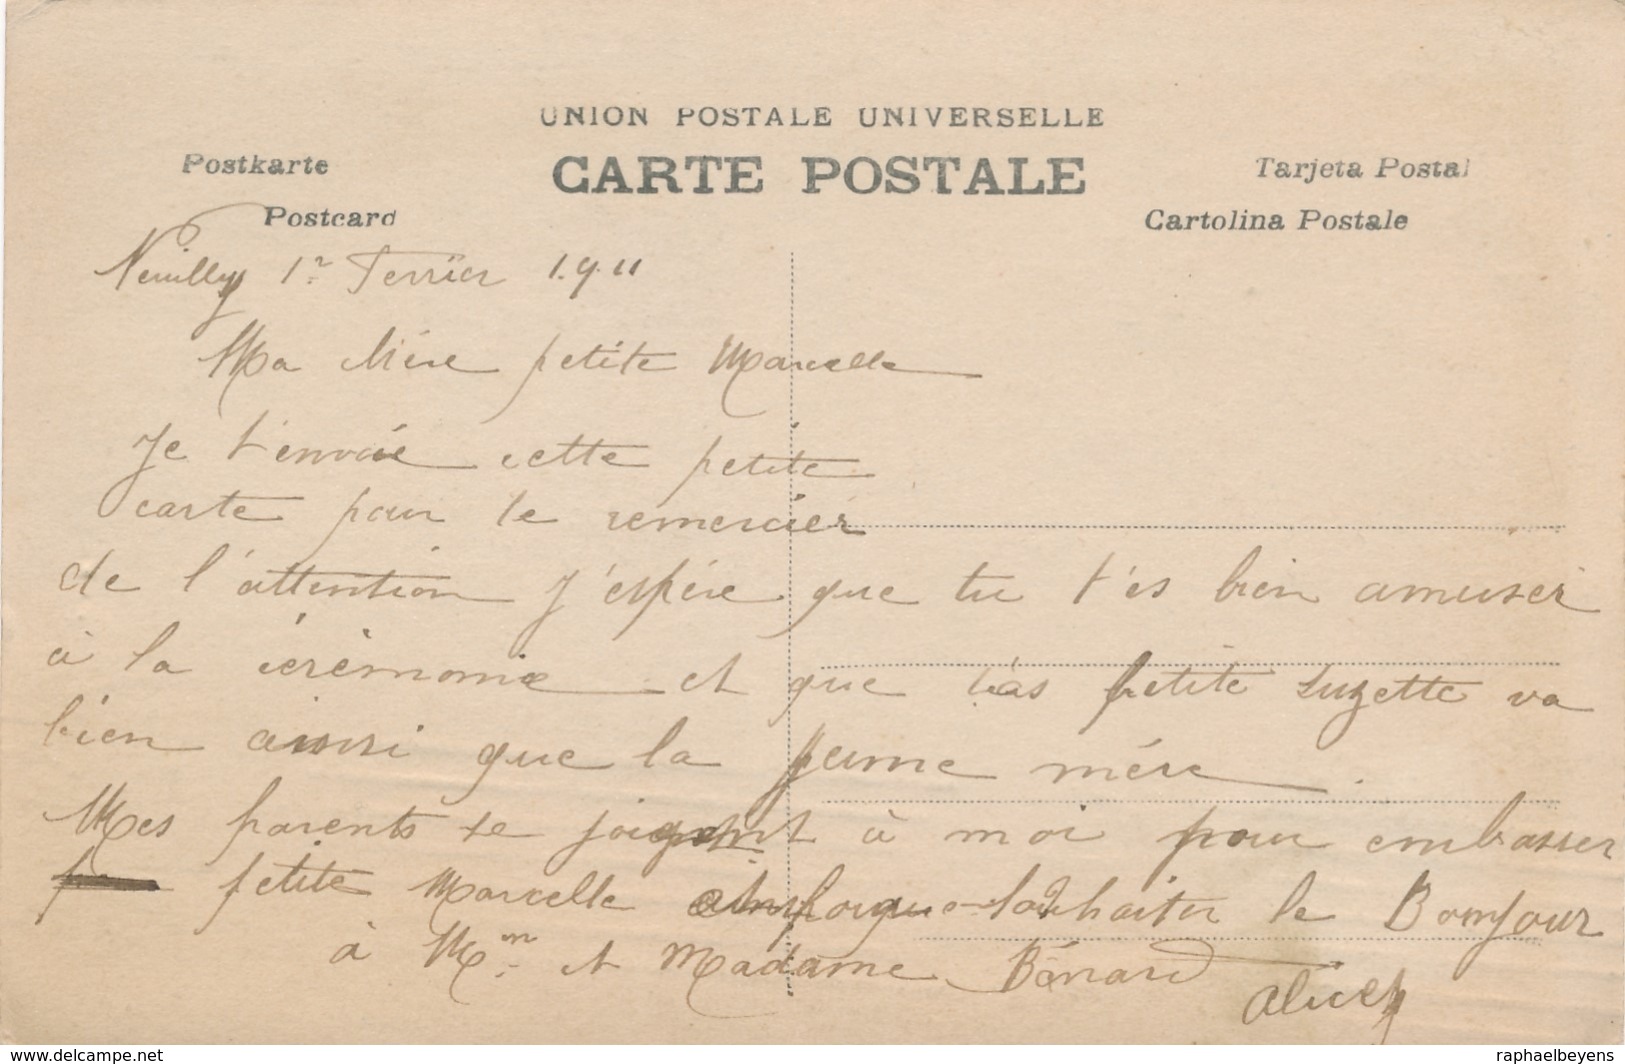 UNION POSTALE UNIVERSELLE
CARTE POSTALE
Postkarte
Tarjeta Postal
Postcard
Cartolina Postale
Neuilly 1r Fevrier 1.9.11
Ma chère petite Marcelle
Je t'envoie cette petite
carte pour te remercier
de l'attention J'espére que tu t'es bien amuser
à la cérèmonie et que tas petite suzette va
bien ainsi que la jeune mére.
Mes parents se joignent à moi pour embasser
petite Marcelle souhaiter le Bonjour
à Mm et Madame Bénard
Alice
www.delcampe.net
raphaelbeyens